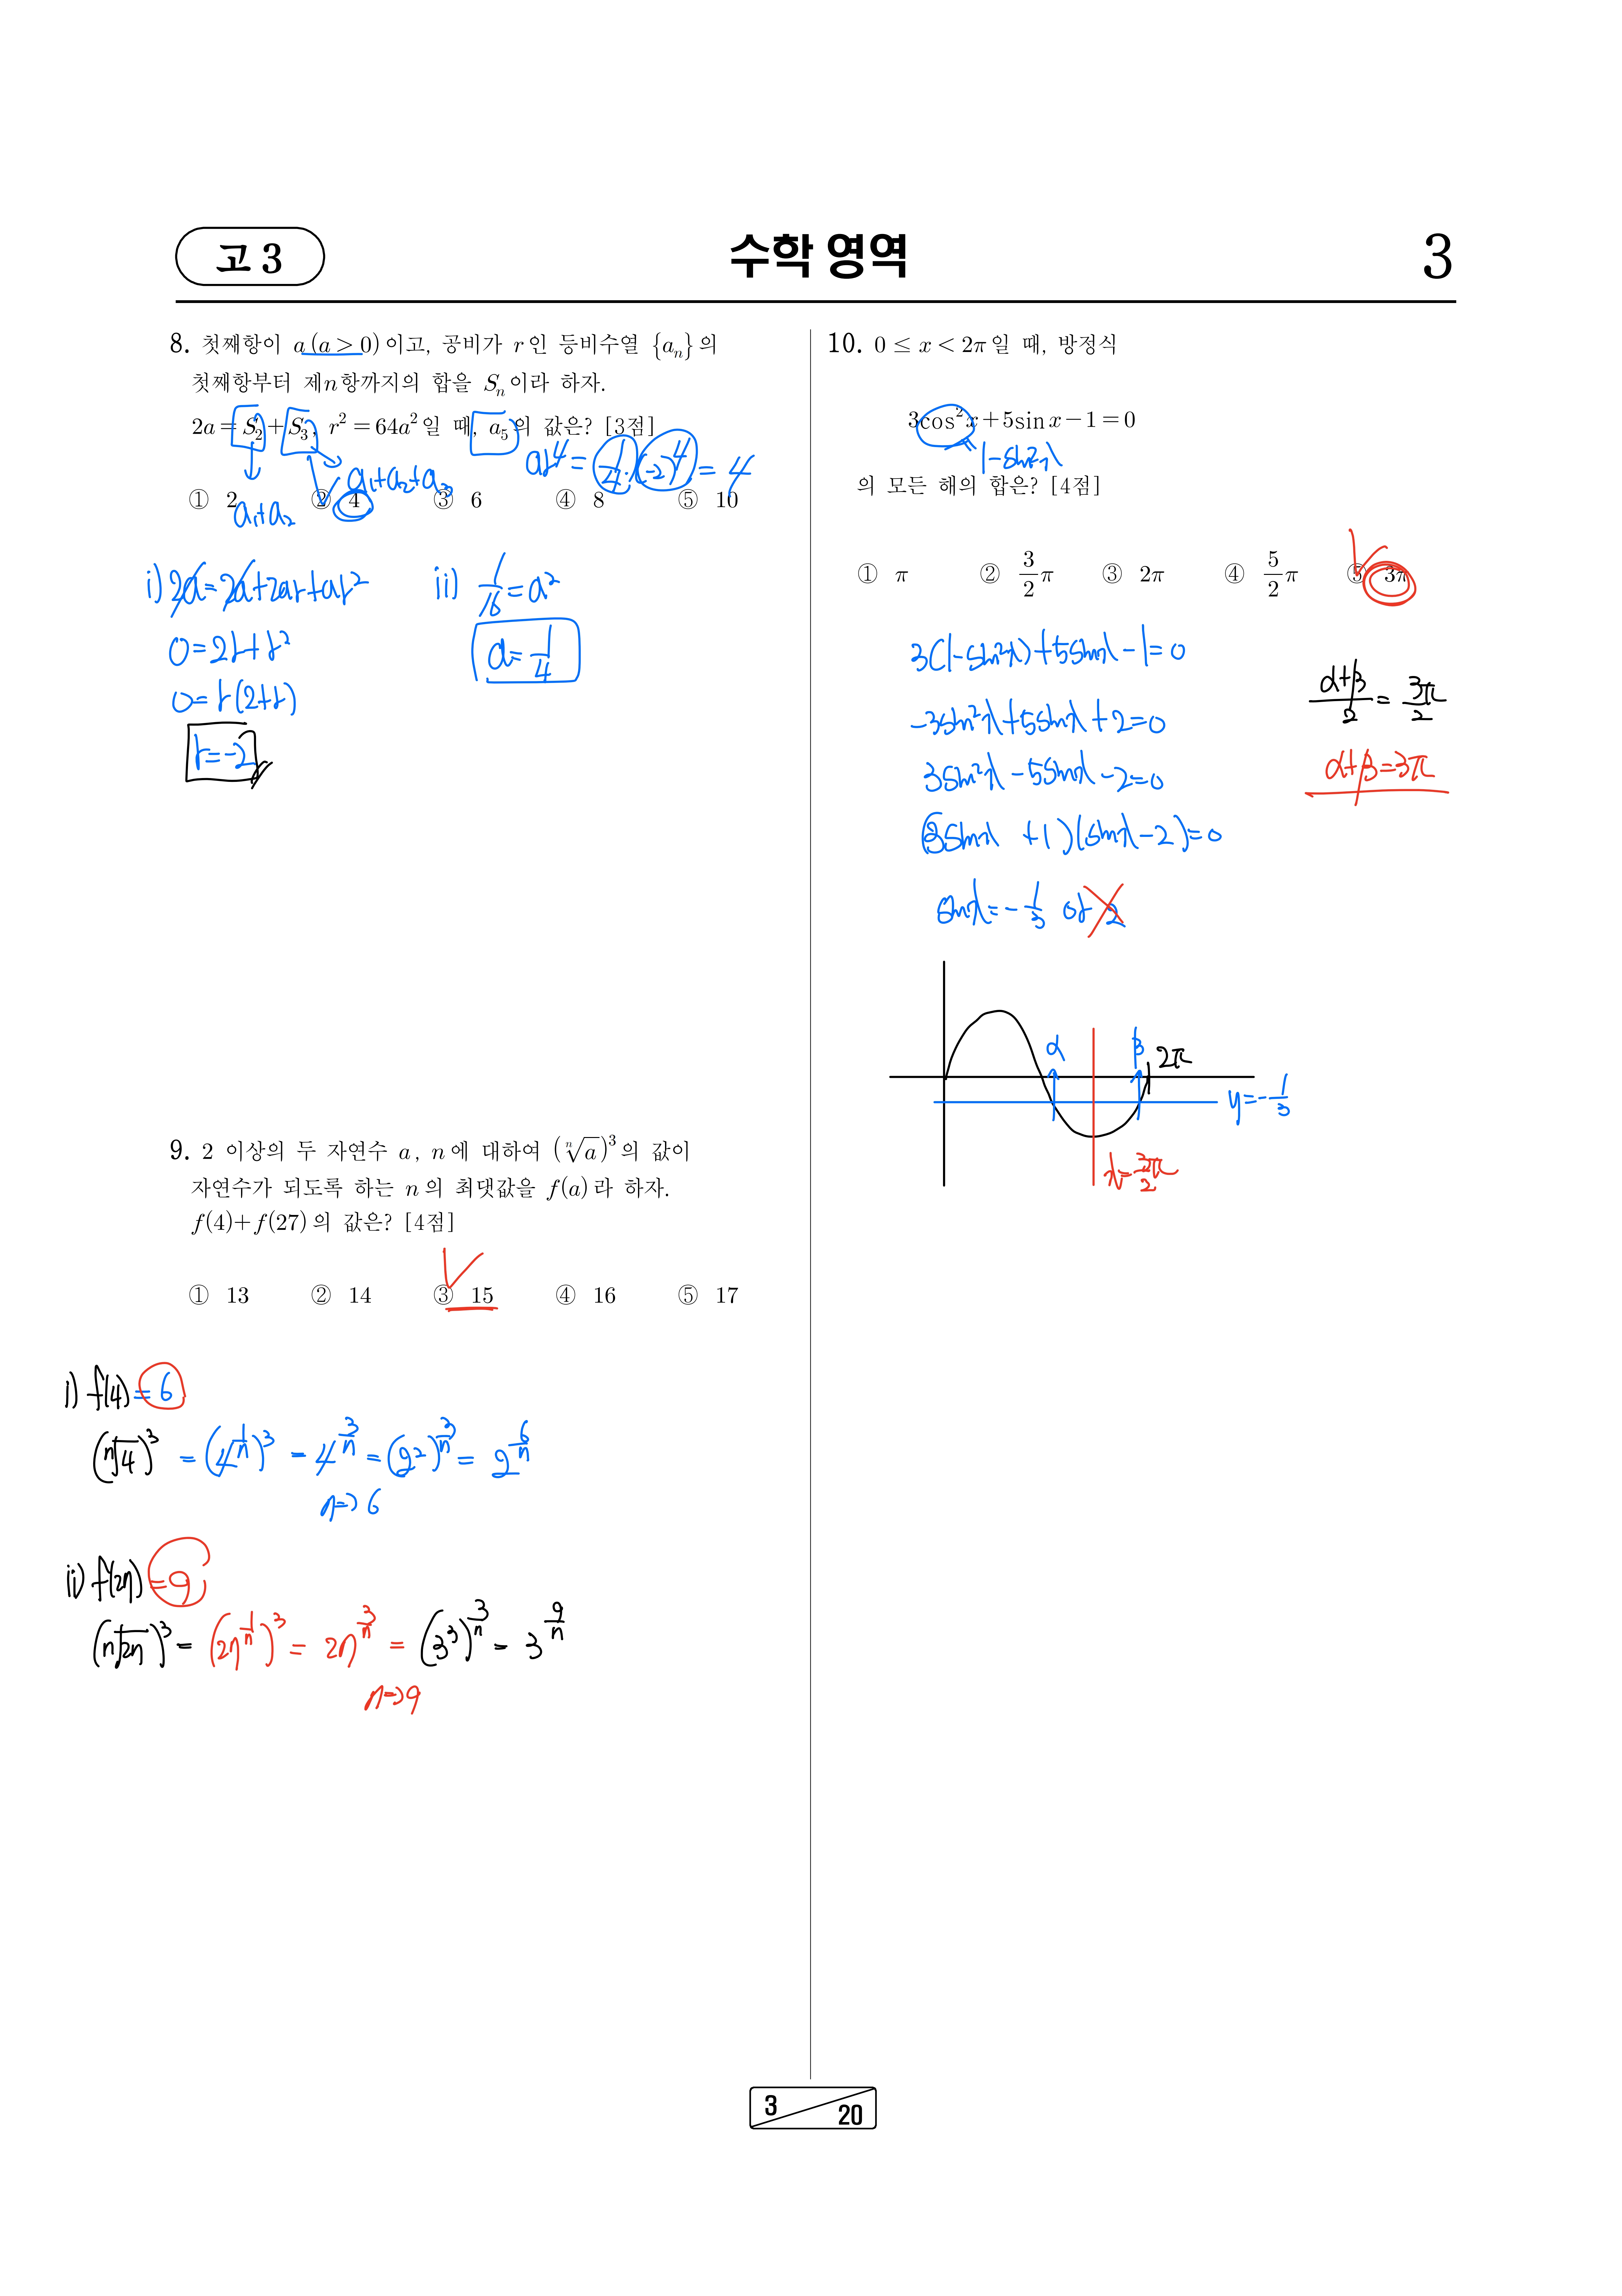 고 3
수학 영역
3
8. 첫째항이 a (a > 0) 이고, 공비가 r 인 등비수열 {aₙ} 의
첫째항부터 제n항까지의 합을 Sₙ 이라 하자.
2a = S₂ + S₃, r² = 64a² 일 때, a₅ 의 값은? [3점]
ar⁴ = 1/4 · (-2)⁴ = 4
a₁+a₂+a₃
① 2 ② 4 ③ 6 ④ 8 ⑤ 10
a₁+a₂
i) 2a = 2a + 2ar + ar²
0 = 2r + r²
0 = r(2+r)
r = -2
ii) 1/16 = a²
a = 1/4
9. 2 이상의 두 자연수 a, n 에 대하여 (ⁿ√a)³ 의 값이
자연수가 되도록 하는 n 의 최댓값을 f(a) 라 하자.
f(4)+f(27) 의 값은? [4점]
① 13 ② 14 ③ 15 ④ 16 ⑤ 17
i) f(4) = 6
(ⁿ√4)³ = (4^(1/n))³ = 4^(3/n) = (2²)^(3/n) = 2^(6/n)
n => 6
ii) f(27) = 9
(ⁿ√27)³ = (27^(1/n))³ = 27^(3/n) = (3³)^(3/n) = 3^(9/n)
n => 9
10. 0 ≤ x < 2π 일 때, 방정식
3cos²x + 5sin x − 1 = 0
1-sin²x
의 모든 해의 합은? [4점]
① π ② 3/2 π ③ 2π ④ 5/2 π ⑤ 3π
3(1-sin²x)+5sinx-1=0
-3sin²x+5sinx+2=0
3sin²x-5sinx-2=0
(3sinx +1)(sinx-2)=0
sinx = -1/3 or 2
(α+β)/2 = 3π/2
α+β=3π
α β 2π
y=-1/3
x=3π/2
3
20